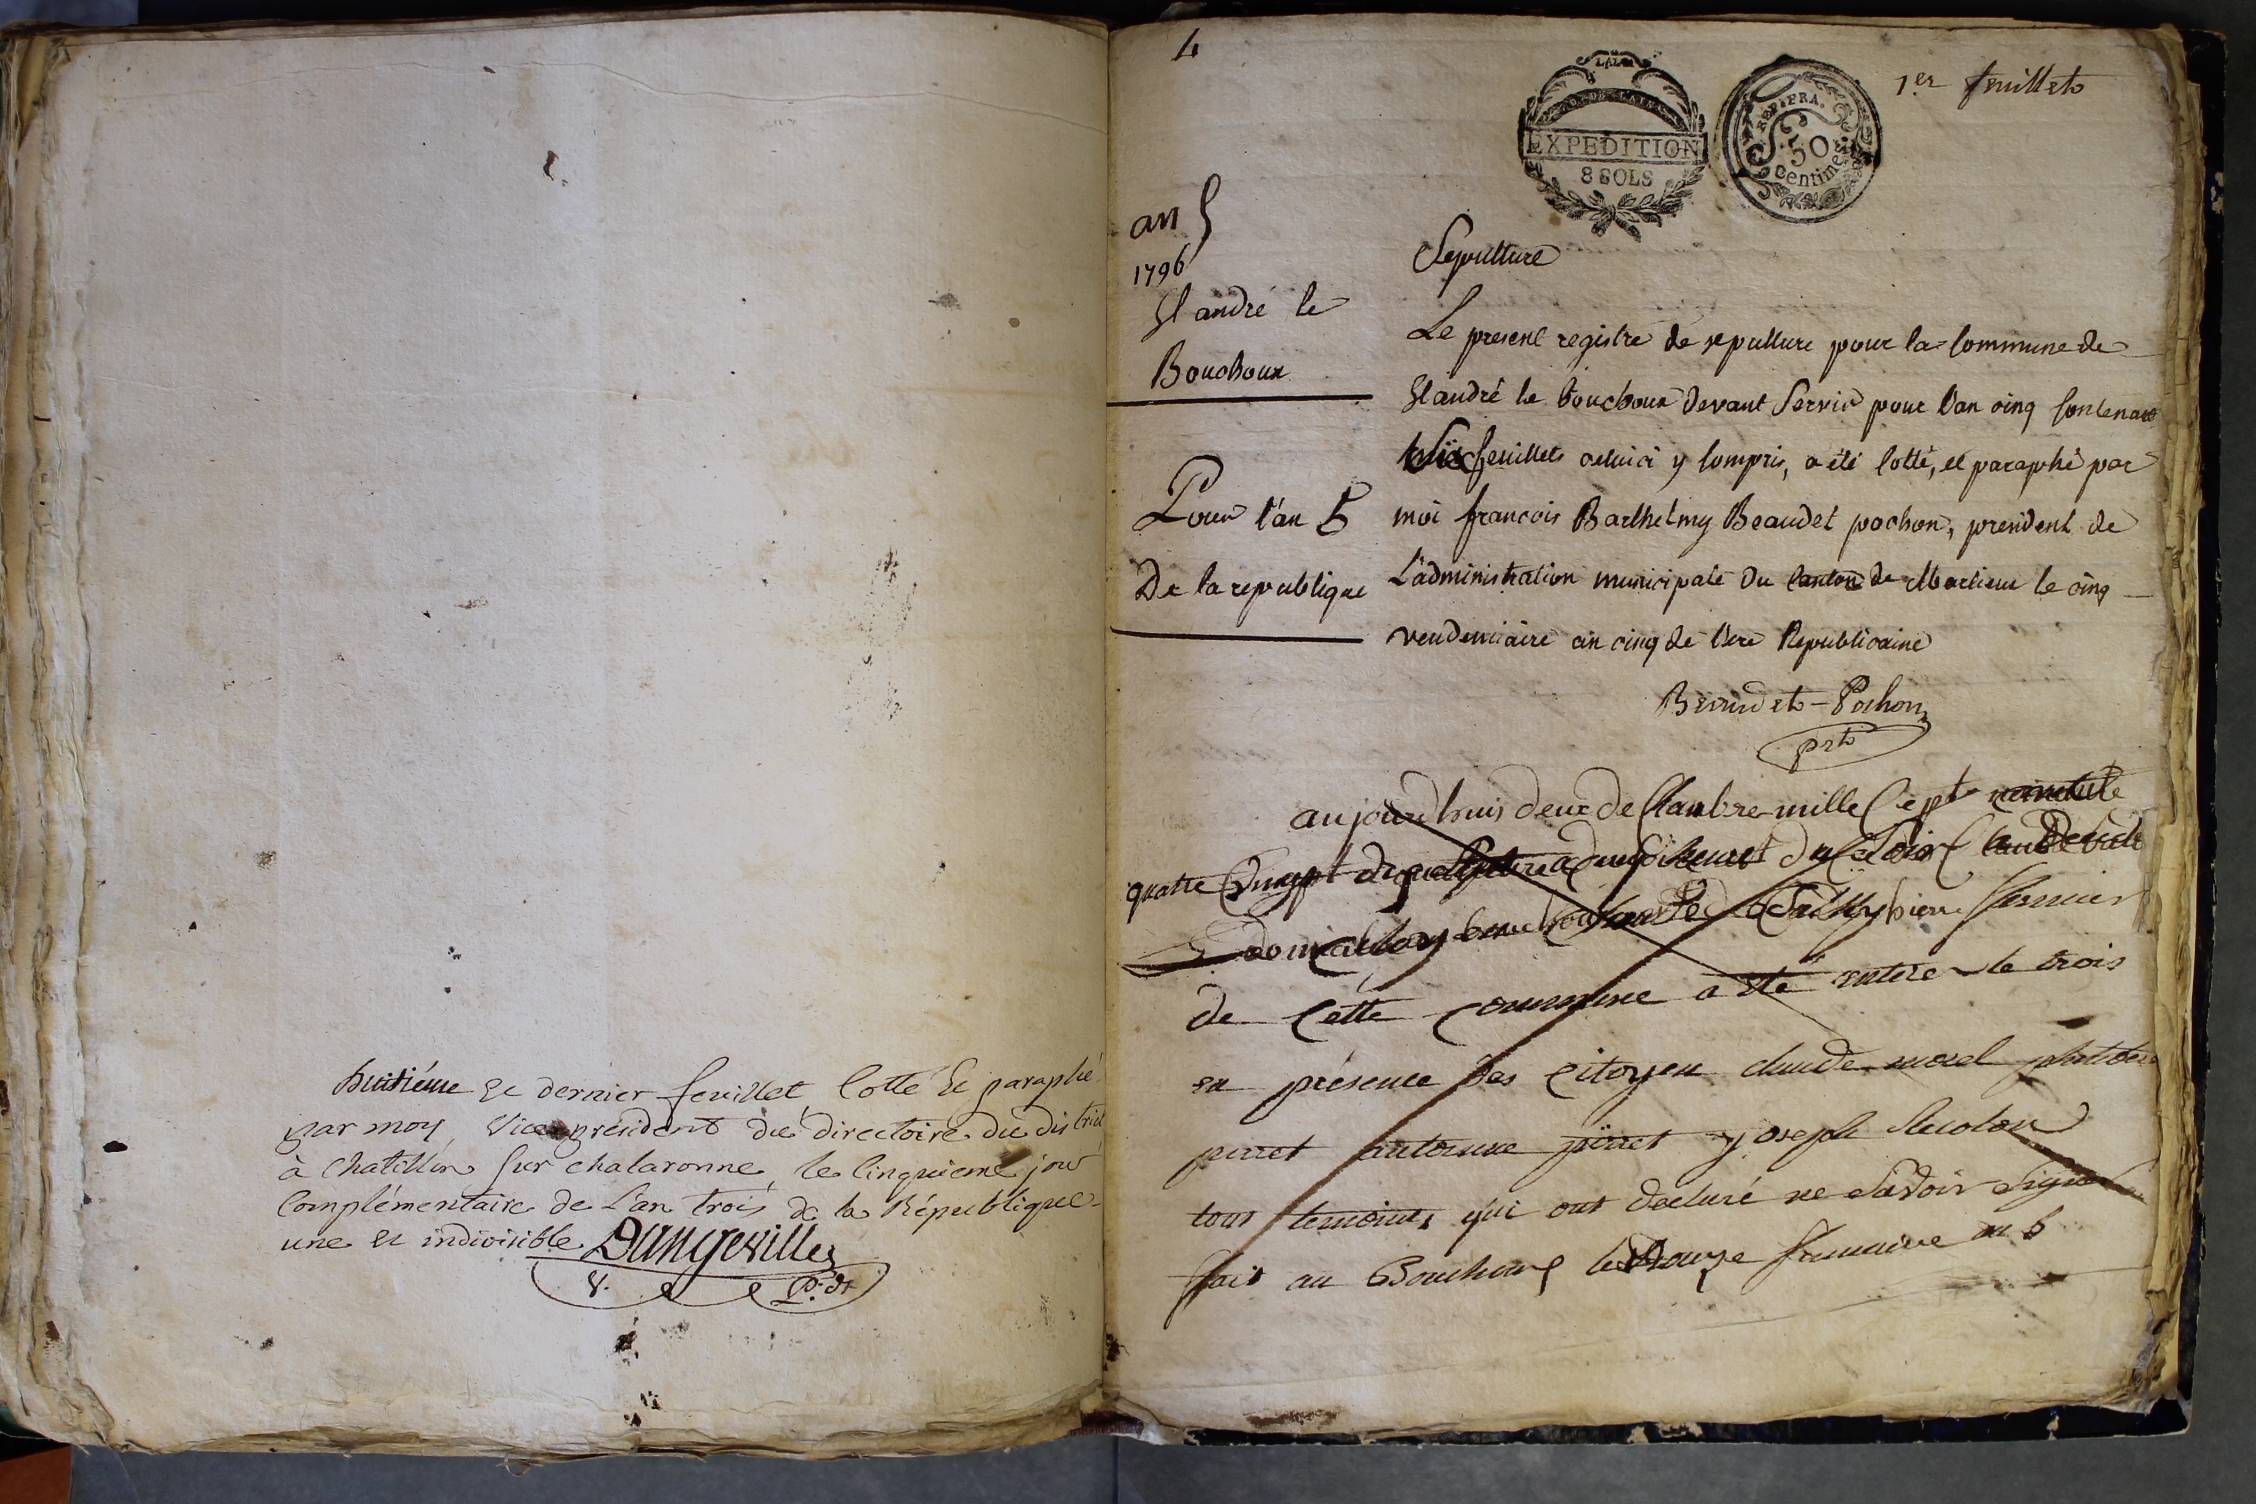 huitiéme et dernier feuillet Cotté et paraphé
par moy Vice président du directoire du district
à Chatillon sur chalaronne, le Cinquieme jour
Complémentaire de L'an trois de la République
une et indivisible Dangeville
V. P.dt
4
1er feuillet
LA LOI
EXPEDITION
8 SOLS
REP. FRA.
50
Centimes
an 5
1796
St andré le
Bouchoux
Pour l'an 5
De la republique
Sepulture
Le present registre de sepulture pour la Commune de
St andré le bouchoux devant Servir pour l'an cinq Contenant
feuillets celuici y Compris, a été Cotté, et paraphé par
moi francois Barthelmy Beaudet pochon, president de
L'administration municipale du Canton de Marlieux le cinq
vendemiaire an cinq de l'ere Republicaine
Beaudet-Pochon
prt
aujourdhuis deux de mille Sept
quatre du Soir
pierre
de Cette commune a été enteré le trois
en présence des Citoyen claude morel
perret antoine perret joseph
tous temoins, qui ont declaré ne Savoir Signer
fait au Bouchoux le douze frumaire an 5